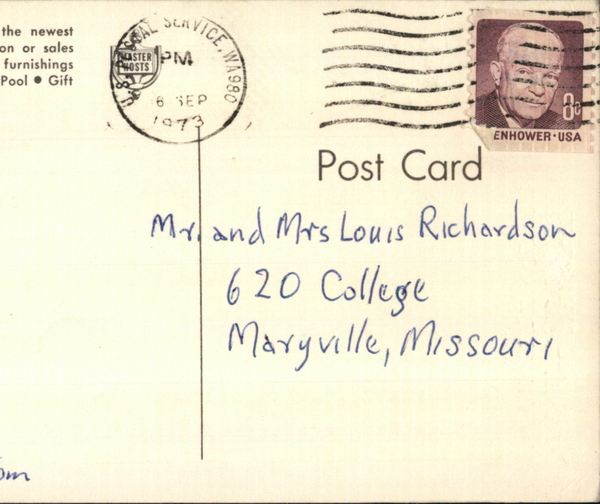 the newest
on or sales
furnishings
Pool • Gift
U.S. POSTAL SERVICE, WA 980
MASTER
HOSTS
PM
6 SEP
1973
8c
ENHOWER·USA
Post Card
Mr. and Mrs Louis Richardson
620 College
Maryville, Missouri
om